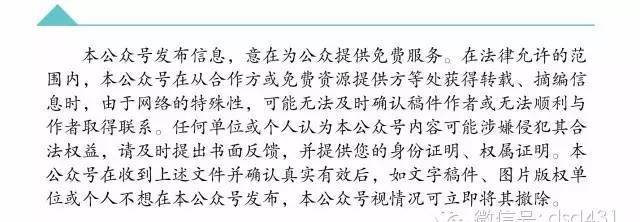 本公众号发布信息，意在为公众提供免费服务。在法律允许的范
围内，本公众号在从合作方或免费资源提供方等处获得转载、摘编信
息时，由于网络的特殊性，可能无法及时确认稿件作者或无法顺利与
作者取得联系。任何单位或个人认为本公众号内容可能涉嫌侵犯其合
法权益，请及时提出书面反馈，并提供您的身份证明、权属证明。本
公众号在收到上述文件并确认真实有效后，如文字稿件、图片版权单
位或个人不想在本公众号发布，本公众号视情况可立即将其撤除。
微信号: dsd431